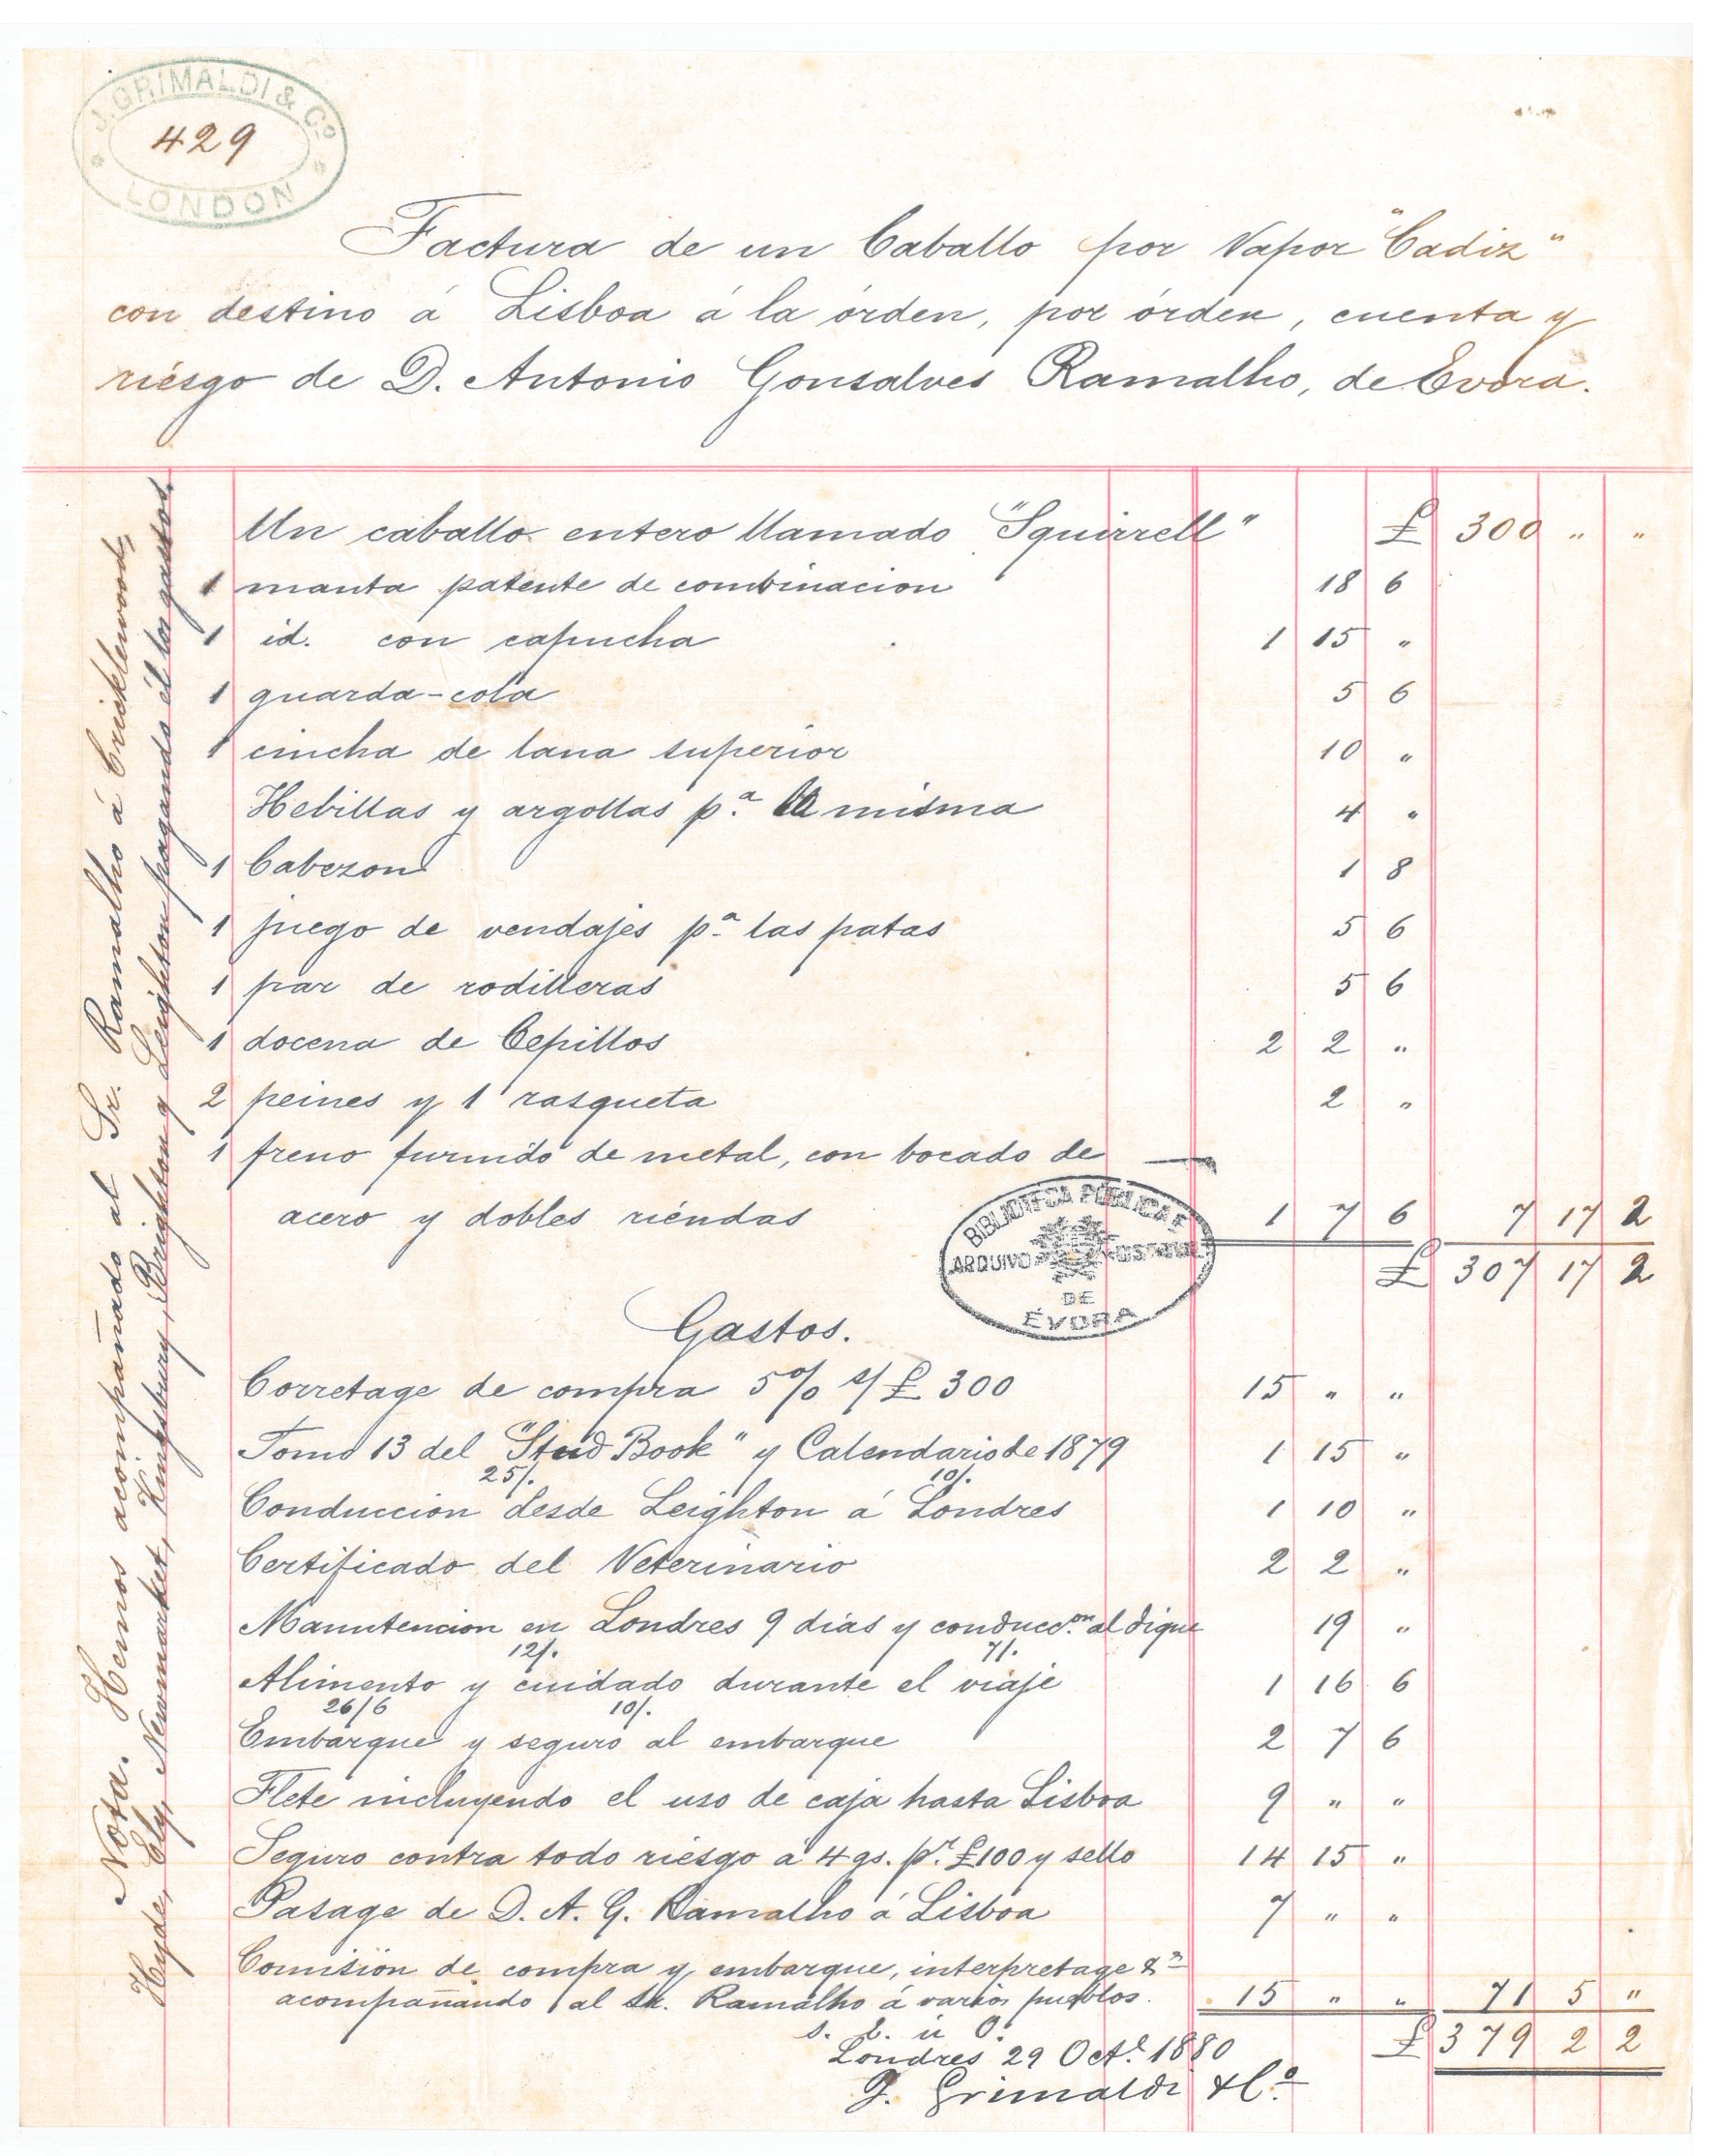 J. GRIMALDI & Cº
429
LONDON
Factura de un Caballo por Vapor "Cadiz"
con destino á Lisboa á la órden, por órden, cuenta y
riésgo de D. Antonio Gonsalves Ramalho, de Evora.
Un caballo entero llamado "Squirrell" £ 300 " "
1 manta patente de combinacion 18 6
1 id. con capucha 1 15 "
1 guarda-cola 5 6
1 cincha de lana superior 10 "
Hebillas y argollas pª la misma 4 "
1 Cabezon 1 8
1 juego de vendajes pª las patas 5 6
1 par de rodilleras 5 6
1 docena de Cepillos 2 2 "
2 peines y 1 rasqueta 2 "
1 freno furnido de metal, con bocado de
acero y dobles riéndas 1 7 6 7 17 2
£ 307 17 2
BIBLIOTECA PÚBLICA E
ARQUIVO DISTRITAL
DE
ÉVORA
Gastos.
Corretage de compra 5% s/ £ 300 15 " "
Tomo 13 del "Stud Book" y Calendario de 1879 1 15 "
25/. 10/.
Conduccion desde Leighton á Londres 1 10 "
Certificado del Veterinario 2 2 "
Manutencion en Londres 9 dias y conduccon. al dique 19 "
12/. 7/.
Alimento y cuidado durante el viaje 1 16 6
26/6 10/.
Embarque y seguro al embarque 2 7 6
Flete incluyendo el uso de caja hasta Lisboa 9 " "
Seguro contra todo riésgo á 4 gs. pr. £100 y sello 14 15 "
Pasage de D. A. G. Ramalho á Lisboa 7 " "
Comision de compra y embarque, interpretage &ª
acompañando al Sr. Ramalho á varios pueblos. 15 " " 71 5 "
s. E. ú O. £ 379 2 2
Londres 29 Octe. 1880
J. Grimaldi & Cº
Nota. Hemos acompañado al Sr. Ramalho á Cricklewood,
Hyde, Ely, Newmarket, Kingsbury, Brighton y Leighton pagando él los gastos.